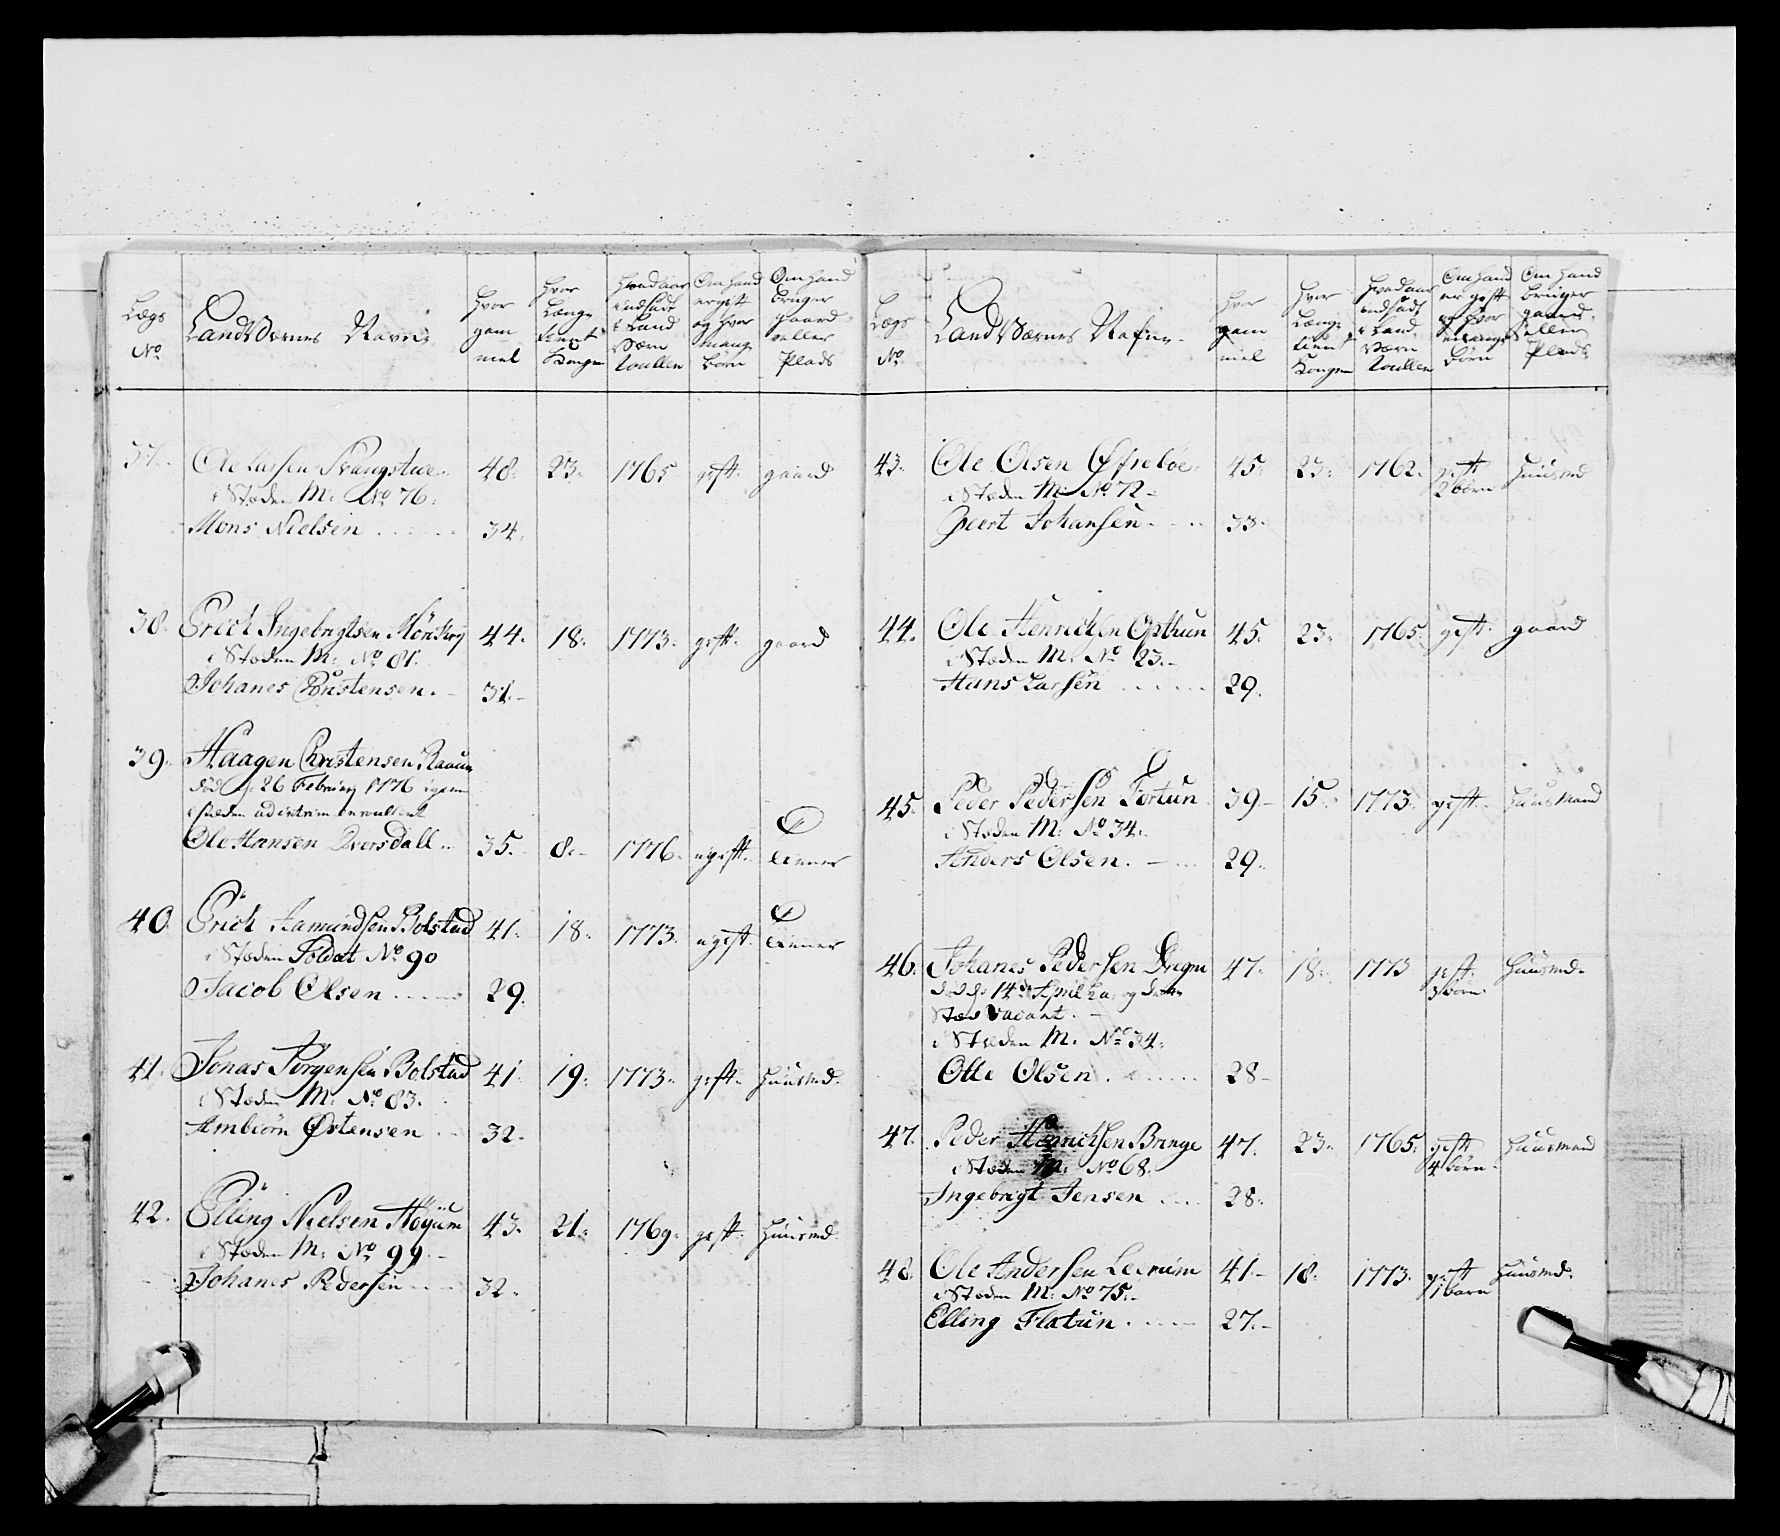 Lægs No
LandVærnes Navne
Hvor gam mel
Hvor Længe tient Kongen
Hvad aar indsadt i Land Værn Roullen
Om hand er gift og hvor mange børn
Om hand bruger gaard eller Plads
37. Ole Larsen 48. 23. 1765 gift. gaard
i Stæden M: No 76.
Mons Nielsen 34.
38. Erich Ingebrigtsen 44. 18. 1773. gift. gaard
i Stæden M: No 81.
Johanes Christensen. 31.
39. Haagen Christensen
død d: 26 Februarij 1776 igien
i stæden ad intrim
Ole Hansen Qversdall 35. 8. 1776. ugift. tienner
40. Erich Aamundsen Bolstad 41. 18. 1773. ugift. tienner
i Stæden Soldat No 90
Jacob Olsen 29.
41. Jonas Jörgensen Bolstad 41. 19. 1773. gift. huusmd.
i Stæden M: No 83.
Ambiörn Østensen 32.
42. Elling Nielsen Höÿum 43. 21. 1769. gift. huusmd.
i Stæden M: No 99.
Johanes Pedersen 32.
Lægs No
LandVærnes Nafne
Hvor gam mel
Hvor Længe tient Kongen
Hvad aar indsadt i Land Værn Roullen
Om hand er gift og hvor mange børn
Om hand bruger gaard eller Plads
43. Ole Olsen Øfreløe 45. 23. 1762. gift 2 børn huusmd
i Stæden M: No 72
Geert Johansen 33.
44. Ole Henrichsen Opthun 45. 23. 1765. gift. gaard
i Stæden M: No 23.
Hans Larsen 29.
45. Peder Pedersen Fortun 39 15. 1773. gift. huusmand
i Stæden M: No 34.
Anders Olsen. 29.
46. Johanes Pedersen 47. 18. 1773 gift. 3 børn. huusmd.
død d: 14de April og
Stæd vacant.
i Stæden M. No 34.
Olle Olsen. 28
47. Peder Henrichsen Bringe 47. 23. 1765. gift 4 børn. huusmand
i Stæden M: No 68.
Ingebrigt Jensen 28.
48. Ole Andersen Leerum 41. 18. 1773. gift 1 barn huusmd.
i Stæden M: No 75.
Elling Flatun 27.